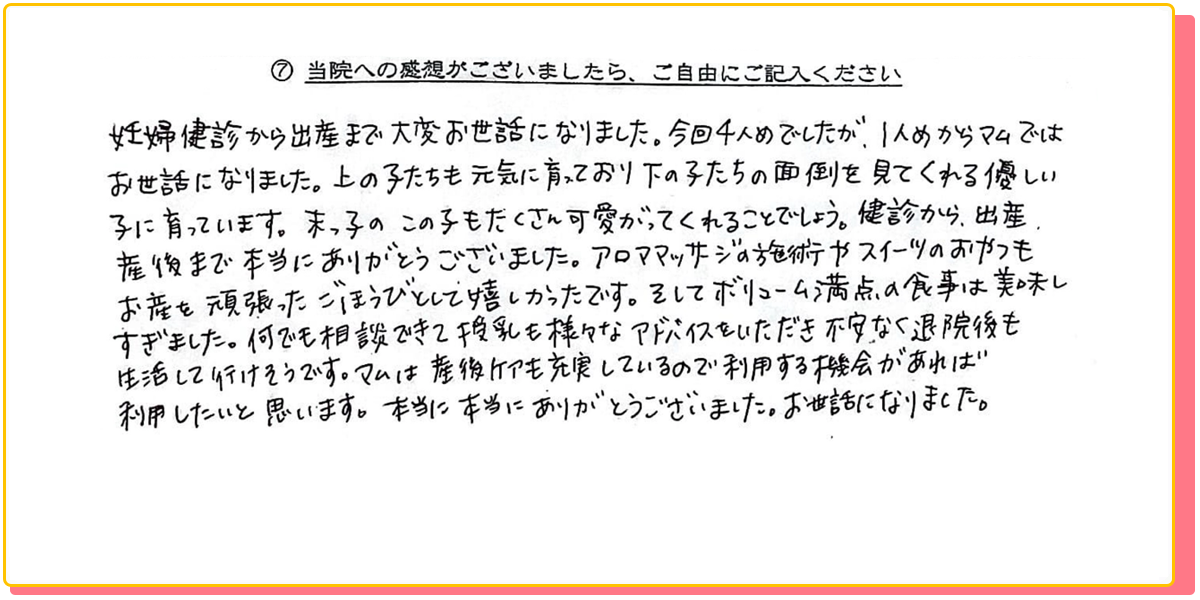 ⑦ 当院への感想がございましたら、ご自由にご記入ください
妊婦健診から出産まで大変お世話になりました。今回4人めでしたが、1人めからマムでは
お世話になりました。上の子たちも元気に育っており下の子たちの面倒を見てくれる優しい
子に育っています。末っ子のこの子もたくさん可愛がってくれることでしょう。健診から、出産、
産後まで本当にありがとうございました。アロママッサージの施術やスイーツのおやつも
お産を頑張ったごほうびとして嬉しかったです。そしてボリューム満点の食事は美味し
すぎました。何でも相談できて授乳も様々なアドバイスをいただき不安なく退院後も
生活して行けそうです。マムは産後ケアも充実しているので利用する機会があれば
利用したいと思います。本当に本当にありがとうございました。お世話になりました。